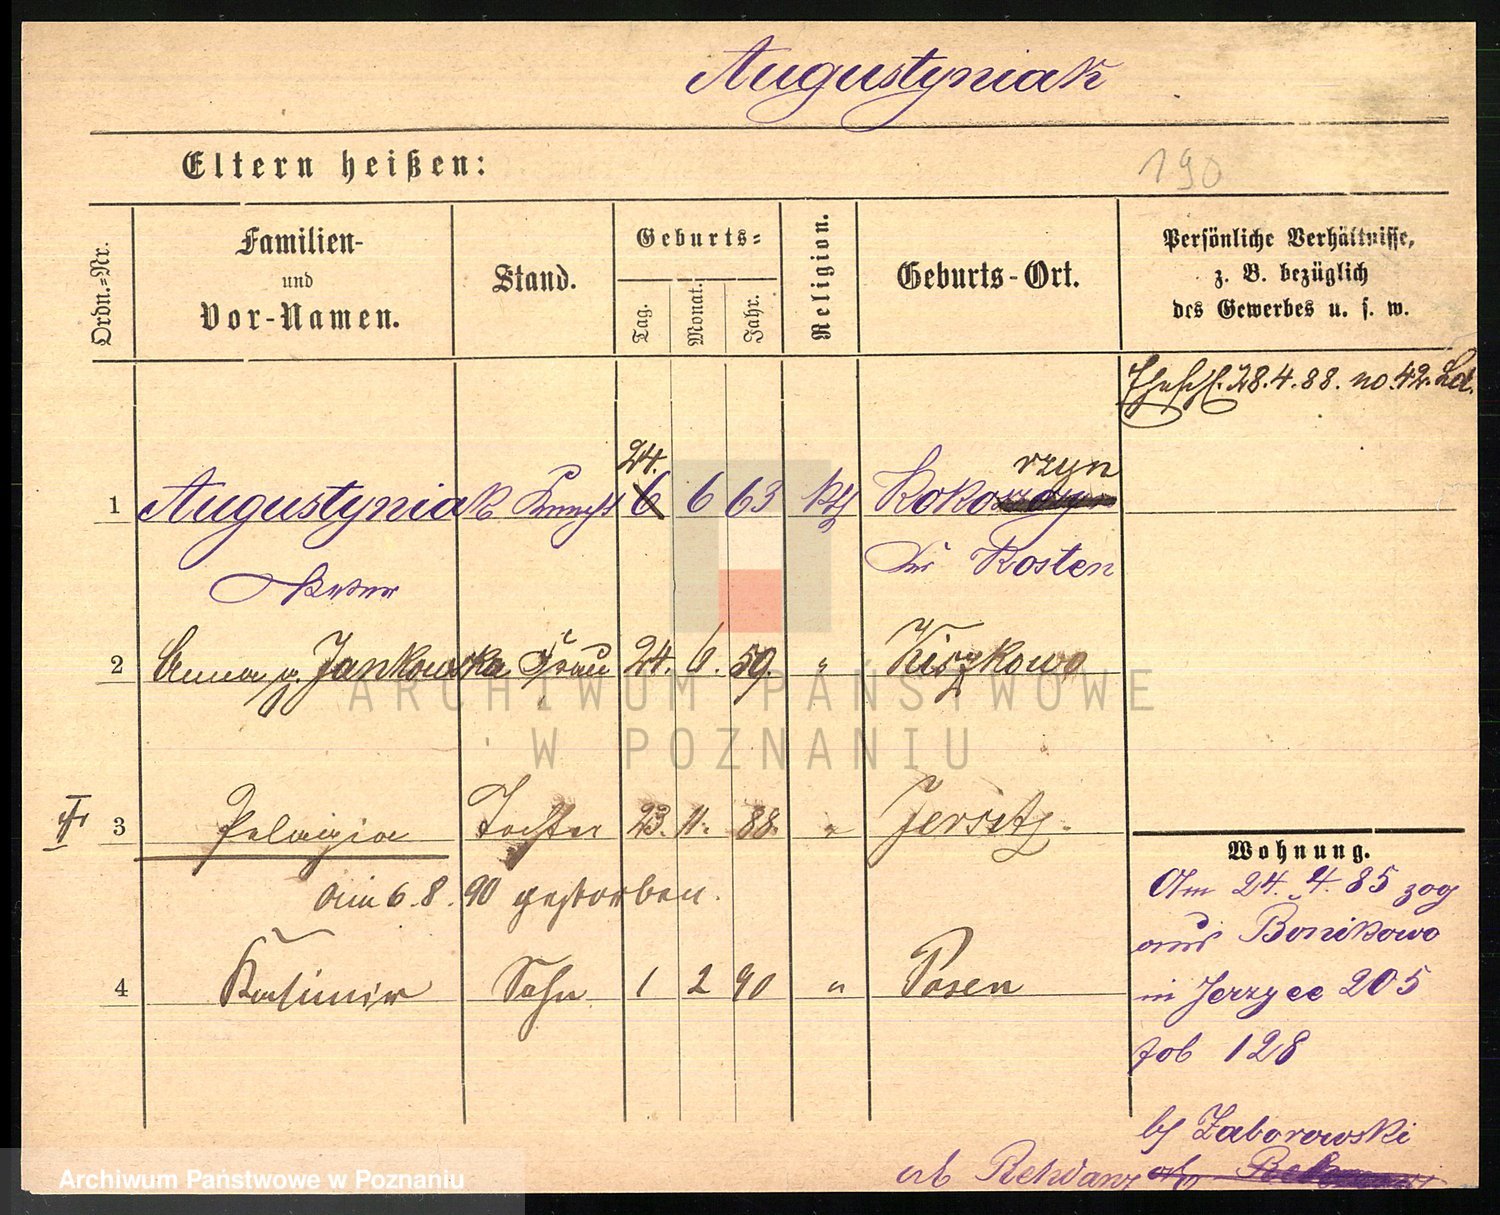 Augustyniak
Eltern heißen:
190
Ordn.=Nr.
Familien-
und
Vor-Namen.
Stand.
Geburts=
Tag.
Monat.
Jahr.
Religion.
Geburts-Ort.
Persönliche Verhältnisse,
z. B. bezüglich
des Gewerbes u. s. w.
Ehesch. 28.4.88. no. 42.
24. rzyn
1 Augustyniak Knecht 6 6 63 kth Kokorzyn
Peter Kr Kosten
2 Anna g. Jankowska Frau 24. 6. 59. " Kiszkowo
3 Pelagia Tochter 23. 11. 88. " Jersitz.
am 6.8.90 gestorben.
4 Kasimir Sohn 1 2 90 " Posen
Wohnung.
Am 24. 4. 85 zog
aus Bonikowo
in Jerzyce 205
Job 128
by Zaborowski
ARCHIWUM PAŃSTWOWE
W POZNANIU
Archiwum Państwowe w Poznaniu